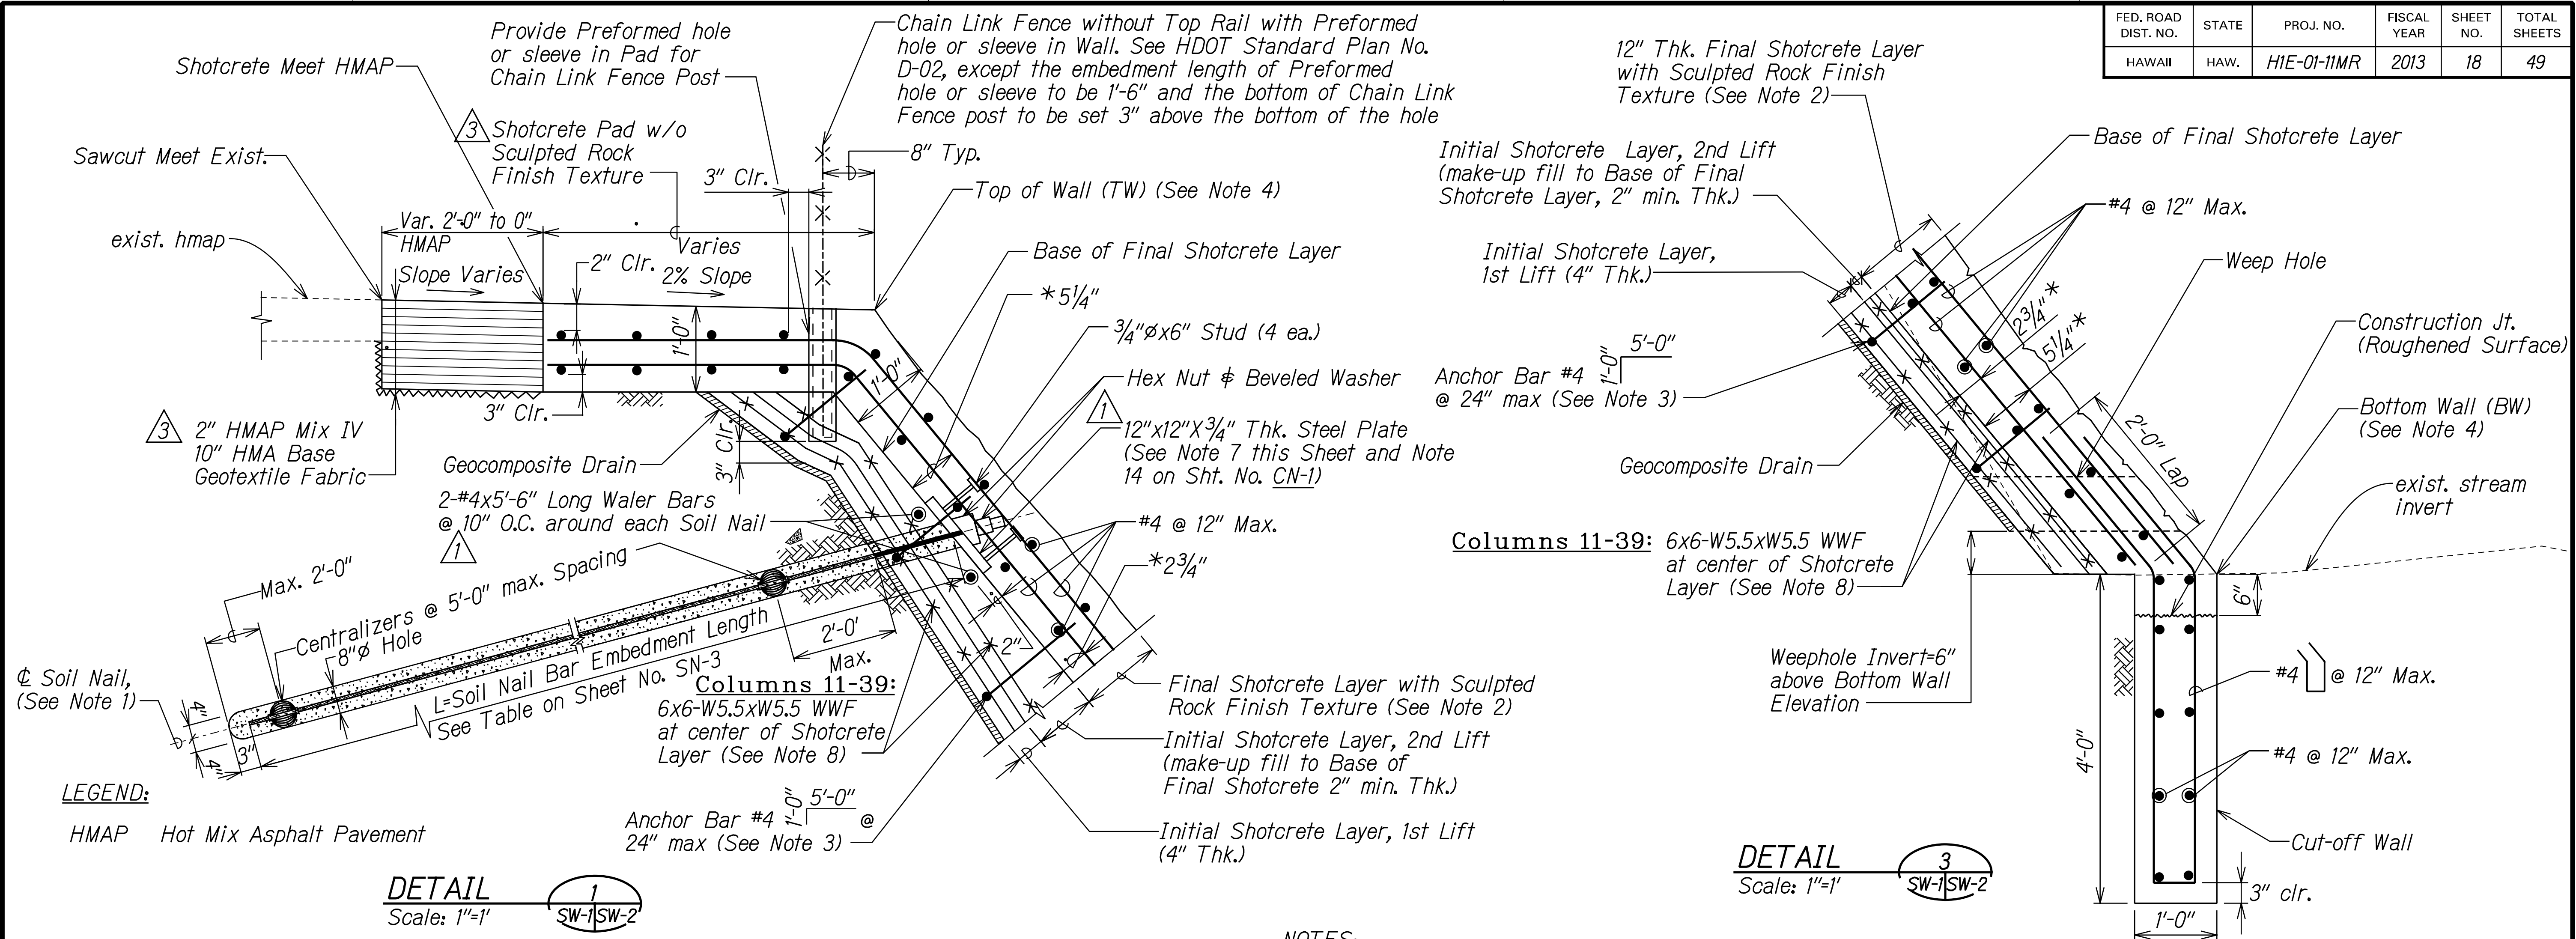 FED. ROAD DIST. NO.
STATE
PROJ. NO.
FISCAL YEAR
SHEET NO.
TOTAL SHEETS
HAWAII
HAW.
H1E-01-11MR
2013
18
49
Provide Preformed hole
or sleeve in Pad for
Chain Link Fence Post
Chain Link Fence without Top Rail with Preformed
hole or sleeve in Wall. See HDOT Standard Plan No.
D-02, except the embedment length of Preformed
hole or sleeve to be 1'-6" and the bottom of Chain Link
Fence post to be set 3" above the bottom of the hole
Shotcrete Meet HMAP
3
Shotcrete Pad w/o
Sculpted Rock
Finish Texture
Sawcut Meet Exist.
3" Clr.
8" Typ.
Top of Wall (TW) (See Note 4)
Var. 2'-0" to 0"
HMAP
Varies
exist. hmap
Slope Varies
2" Clr.
2% Slope
Base of Final Shotcrete Layer
*5¼"
1'-0"
¾"øx6" Stud (4 ea.)
1'-0"
Hex Nut & Beveled Washer
3" Clr.
1
12"x12"X¾" Thk. Steel Plate
(See Note 7 this Sheet and Note
14 on Sht. No. CN-1)
3
2" HMAP Mix IV
10" HMA Base
Geotextile Fabric
Geocomposite Drain
3" Clr.
2-#4x5'-6" Long Waler Bars
@ 10" O.C. around each Soil Nail
1
#4 @ 12" Max.
*2¾"
Max. 2'-0"
Centralizers @ 5'-0" max. Spacing
8"ø Hole
L=Soil Nail Bar Embedment Length
See Table on Sheet No. SN-3
2'-0'
Max.
2"
℄ Soil Nail,
(See Note 1)
4"
4"
3"
Columns 11-39:
6x6-W5.5xW5.5 WWF
at center of Shotcrete
Layer (See Note 8)
Final Shotcrete Layer with Sculpted
Rock Finish Texture (See Note 2)
Initial Shotcrete Layer, 2nd Lift
(make-up fill to Base of
Final Shotcrete 2" min. Thk.)
Anchor Bar #4 1'-0" 5'-0" @
24" max (See Note 3)
Initial Shotcrete Layer, 1st Lift
(4" Thk.)
LEGEND:
HMAP Hot Mix Asphalt Pavement
DETAIL
Scale: 1"=1'
1
SW-1 SW-2
12" Thk. Final Shotcrete Layer
with Sculpted Rock Finish
Texture (See Note 2)
Base of Final Shotcrete Layer
Initial Shotcrete Layer, 2nd Lift
(make-up fill to Base of Final
Shotcrete Layer, 2" min. Thk.)
#4 @ 12" Max.
Initial Shotcrete Layer,
1st Lift (4" Thk.)
Weep Hole
2¾"*
5¼"*
Construction Jt.
(Roughened Surface)
Anchor Bar #4 1'-0" 5'-0"
@ 24" max (See Note 3)
Bottom Wall (BW)
(See Note 4)
2'-0" Lap
Geocomposite Drain
exist. stream
invert
Columns 11-39: 6x6-W5.5xW5.5 WWF
at center of Shotcrete
Layer (See Note 8)
6"
Weephole Invert=6"
above Bottom Wall
Elevation
#4 @ 12" Max.
4'-0"
#4 @ 12" Max.
Cut-off Wall
3" clr.
1'-0"
DETAIL
Scale: 1"=1'
3
SW-1 SW-2
NOTES: